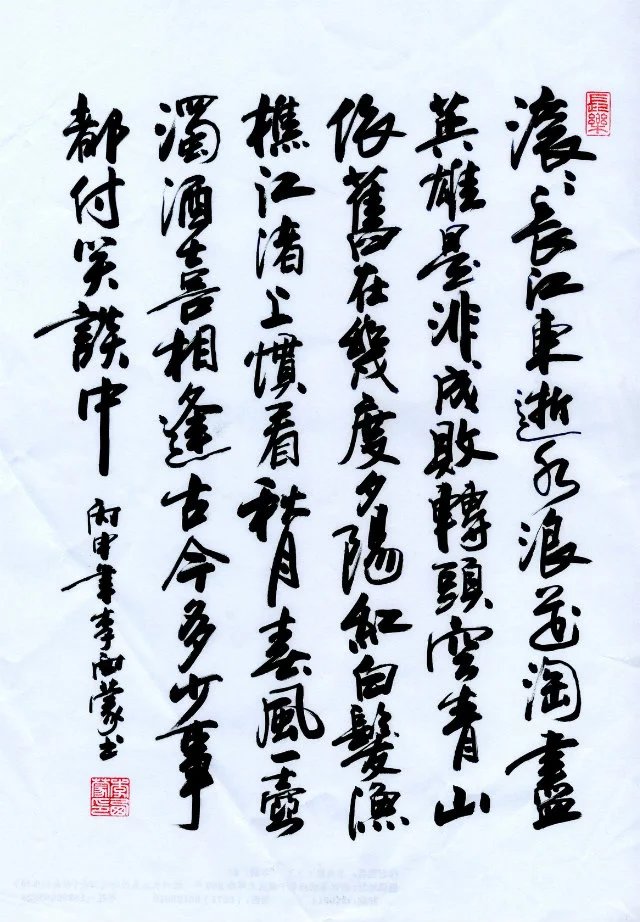 滚〻長江東逝水浪花淘盡
英雄是非成敗轉頭空青山
依舊在幾度夕陽紅白髮漁
樵江渚上慣看秋月春風一壺
濁酒喜相逢古今多少事
都付笑談中
丙申年李西蒙書
長樂